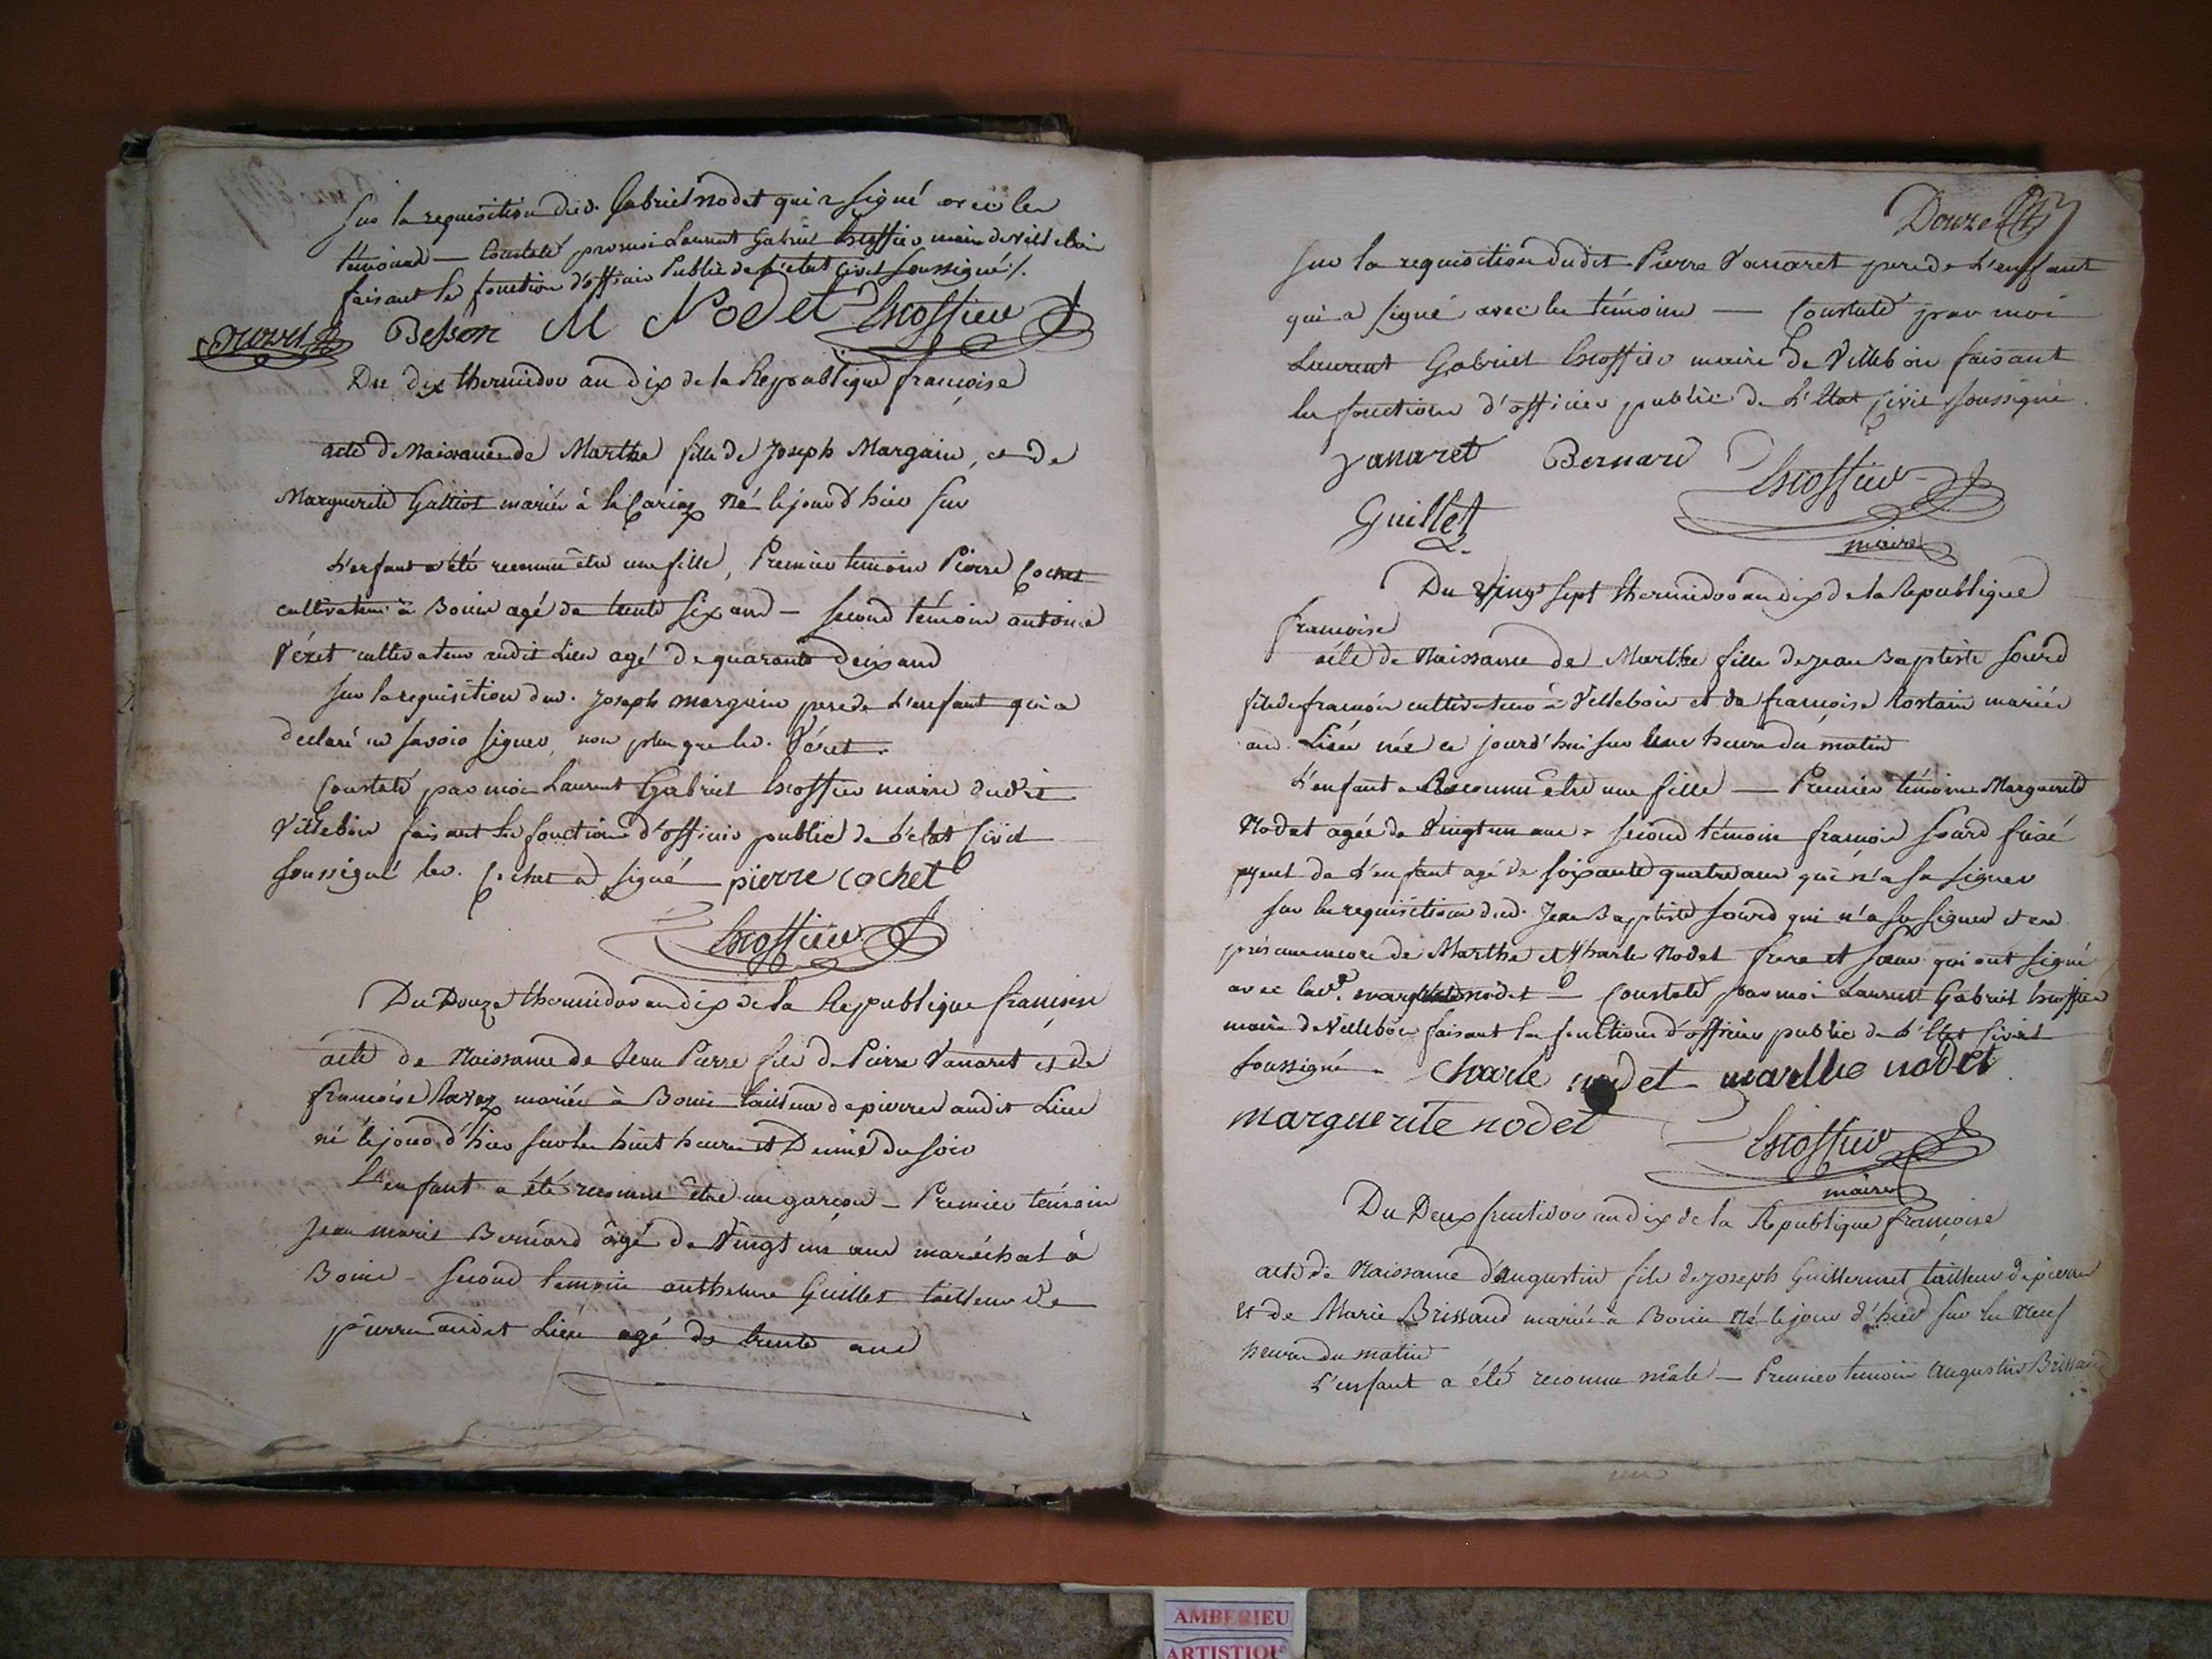 Sur la requisition dud. Gabriel Nodet qui a signé avec les
témoins — Constaté par moi Laurent Gabriel Escoffier maire de Villebois
faisant les fonction d'officier Public de l'etat Civil soussigné ./.
Besson M Nodet Escoffier
Du dix thermidor an dix de la Republique françoise
acte de Naissance de Marthe fille de Joseph Margain, et de
Marguerite Galliot mariés à la Né le jour d'hier sur
L'enfant a été reconnu être une fille, Premier temoins Pierre Cochet
cultivateur à Bouis agé de trente six ans — second témoin antoine
Véret cultivateur audit Lieu agé de quarante deux ans
sur la requisition dud. Joseph margain pere de L'enfant qui a
declaré ne savoir signer, non plus que led. Véret.
Constaté par moi Laurent Gabriel Escoffier maire dudit
Villebois faisant les fonctions d'officier public de l'etat Civil
soussigné led. Cochet a signé pierre cochet
Escoffier
Du Douze thermidor an dix de la Republique françoise
acte de Naissance de Jean Pierre fils de Pierre Vanaret et de
françoise Ravaz mariés à Bouis tailleur de pierres audit Lieu
né le jour d'hier sur les huit heures et Demie du soir
L'enfant a été reconnu être un garçon — Premier témoin
Jean marie Bernard âgé de Vingt un ans maréchal à
Bouis — second temoin anthelme Guillet tailleur de
pierre audit Lieu agé de trente ans
Douze
Sur la requisition dudit Pierre Vanaret pere de L'enffant
qui a signé avec les témoins — Constaté par moi
Laurent Gabriel Escoffier maire de Villebois faisant
les fonctions d'officier public de L'Etat Civil soussigné.
vanaret Bernard Escoffier
Guillet
maire
Du Vingt sept thermidor an dix de la Republique
françoise
acte de Naissance de Marthe fille de Jean Baptiste Sourd
fils de françois cultivateur à Villebois et de françoise Rostain mariés
aud. Lieu née ce jourd'hui sur Une heure du matin
L'enfant a reconnu être une fille — Premier témoins Marguerite
Nodet agée de Vingt un ans — second témoin françois Sourd
de L'enfant agé de soixante quatre ans qui n'a su signer
sur la requisition dud. Jean Baptiste Sourd qui n'a su signer et en
présence encore de Marthe et Charle Nodet frere et sœur qui ont signé
avec lad. marguerite nodet — Constaté par moi Laurent Gabriel Escoffier
maire de Villebois faisant les fonctions d'officier public de L'Etat Civil
soussigné — Charle nodet marthe nodet
marguerite nodet
Escoffier
maire
Du Deux fructidor an dix de la Republique françoise
acte de Naissance d'augustin fils de Joseph Guillermet tailleur de pierre
Et de Marie Brissaud mariés à Bouis Né le jour d'hier sur les Neuf
heures du matin
L'enfant a été reconnu mâle — Premier temoin augustin Brissaud
AMBERIEU
ARTISTIQU